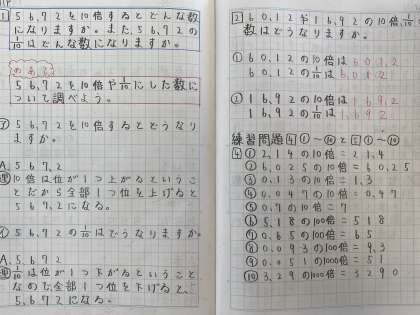 1 56,72を10倍するとどんな数
になりますか。また、56,72の
1/10はどんな数になりますか。
めあて
56,72を10倍や1/10にした数に
ついて調べよう。
ア 56,72を10倍するとどうなり
ますか。
A. 567,2
理 10倍は位が1つ上がるというこ
とだから全部1つ位を上げると
567,2になる。
イ 56,72の1/10はどうなりますか。
A. 5,672
理 1/10は位が1つ下がるということ
なので、全部1つ位を下げると、
5,672になる。
2 60,12や16,92の10倍、1/10の
数はどうなりますか。
① 60,12の10倍は601,2
60,12の1/10は6,012
② 16,92の10倍は169,2
16,92の1/10は1,692
練習問題 4 ①~⑩と 5 ①~⑩
4 ① 2,14の10倍=21,4
② 6,025の10倍=60,25
③ 0,13の10倍=1,3
④ 0,047の10倍=0,47
⑤ 0,7の10倍=7
⑥ 5,18の100倍=518
⑦ 0,65の100倍=65
⑧ 0,093の100倍=9,3
⑨ 0,051の1000倍=51
⑩ 3,29の1000倍=3290